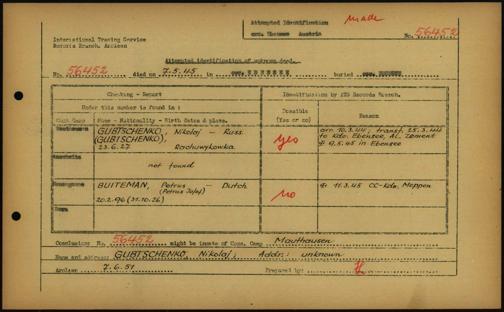 Attempted Identification
cem. Ebensee Austria
made
No. 56452
International Tracing Service
Records Branch, Arolsen
Attempted identification of unknown dead.
No. 56452 died on 7.5.45 in cem. EBENSEE buried cem. EBENSEE
Checking - Report
Identifications by ITS Records Branch.
Under this number is found in:
Possible
(Yes or no)
Reason
Conc. Camp Name - Nationality - Birth dates & place.
Mauthausen
GUBTSCHENKO, Nikolaj - Russ.
(GUBTSCHENKO),
23.6.27 Rachuwykowka
yes
arr. 10.3.44; transf. 25.3.44
to Kdo. Ebensee, Al. Zement
9.5.45 in Ebensee
not found
BUITEMAN, Petrus - Dutch
(Petrus Jozef)
20.2.96 (31.10.26)
no
11.3.45 CC-Kdo. Meppen
Conclusion: No. 56452 might be inmate of Conc. Camp Mauthausen
Name and address: GUBTSCHENKO, Nikolaj; Addr: unknown
Arolsen 7.6.51 Prepared by: